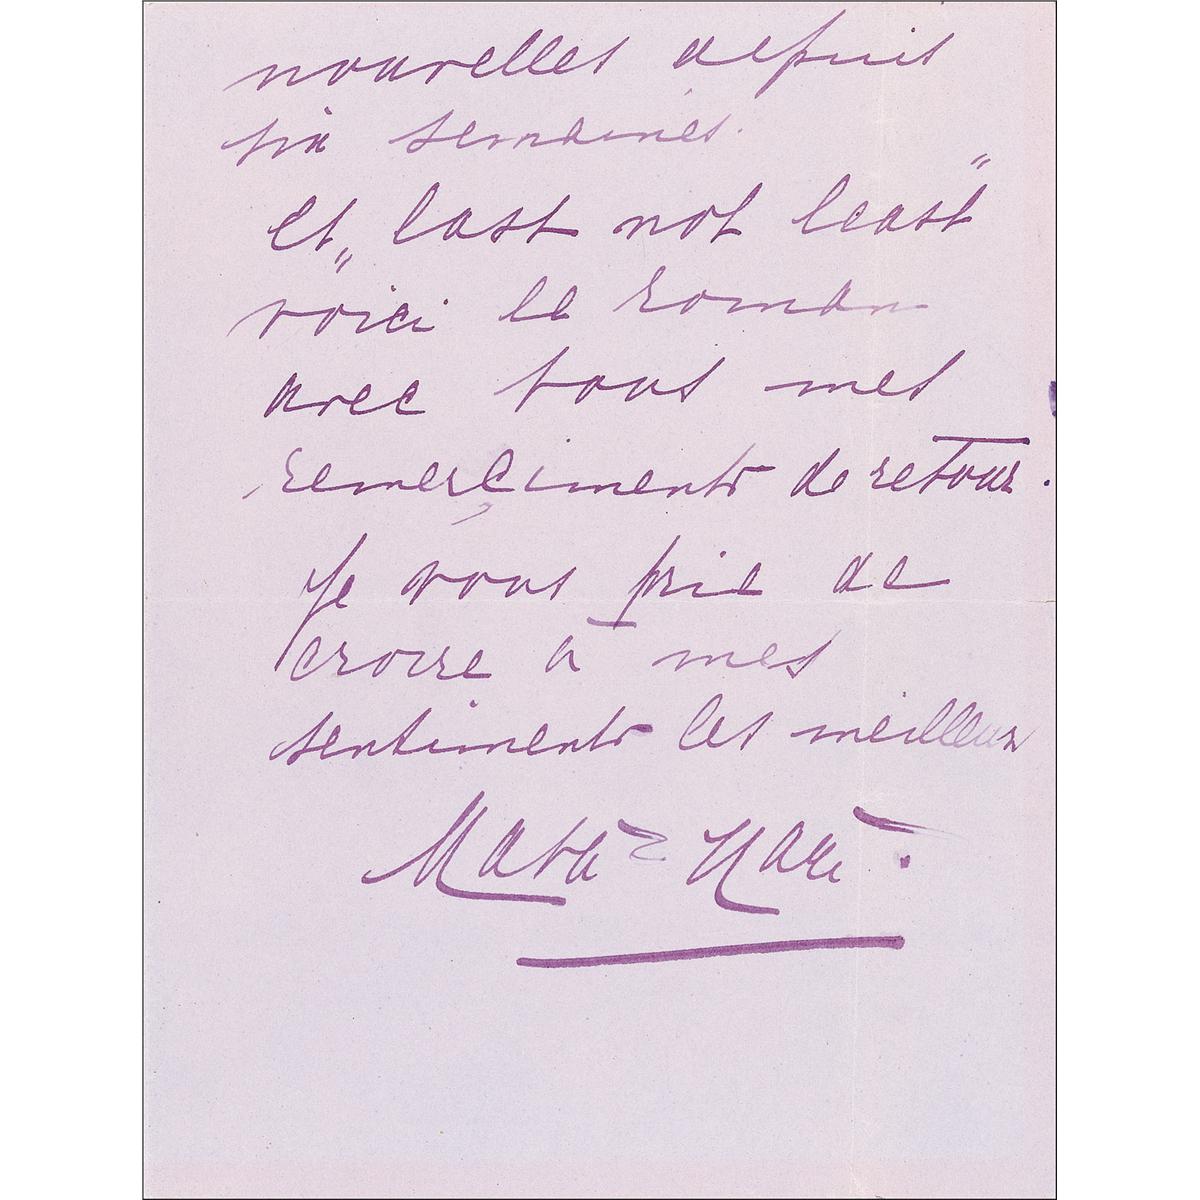 nouvelles depuis
six semaines.
Et „last not least"
voici le roman
avec tous mes
remerçiments de retour.
Je vous prie de
croire à mes
sentiments les meilleurs
Mata-Hari.